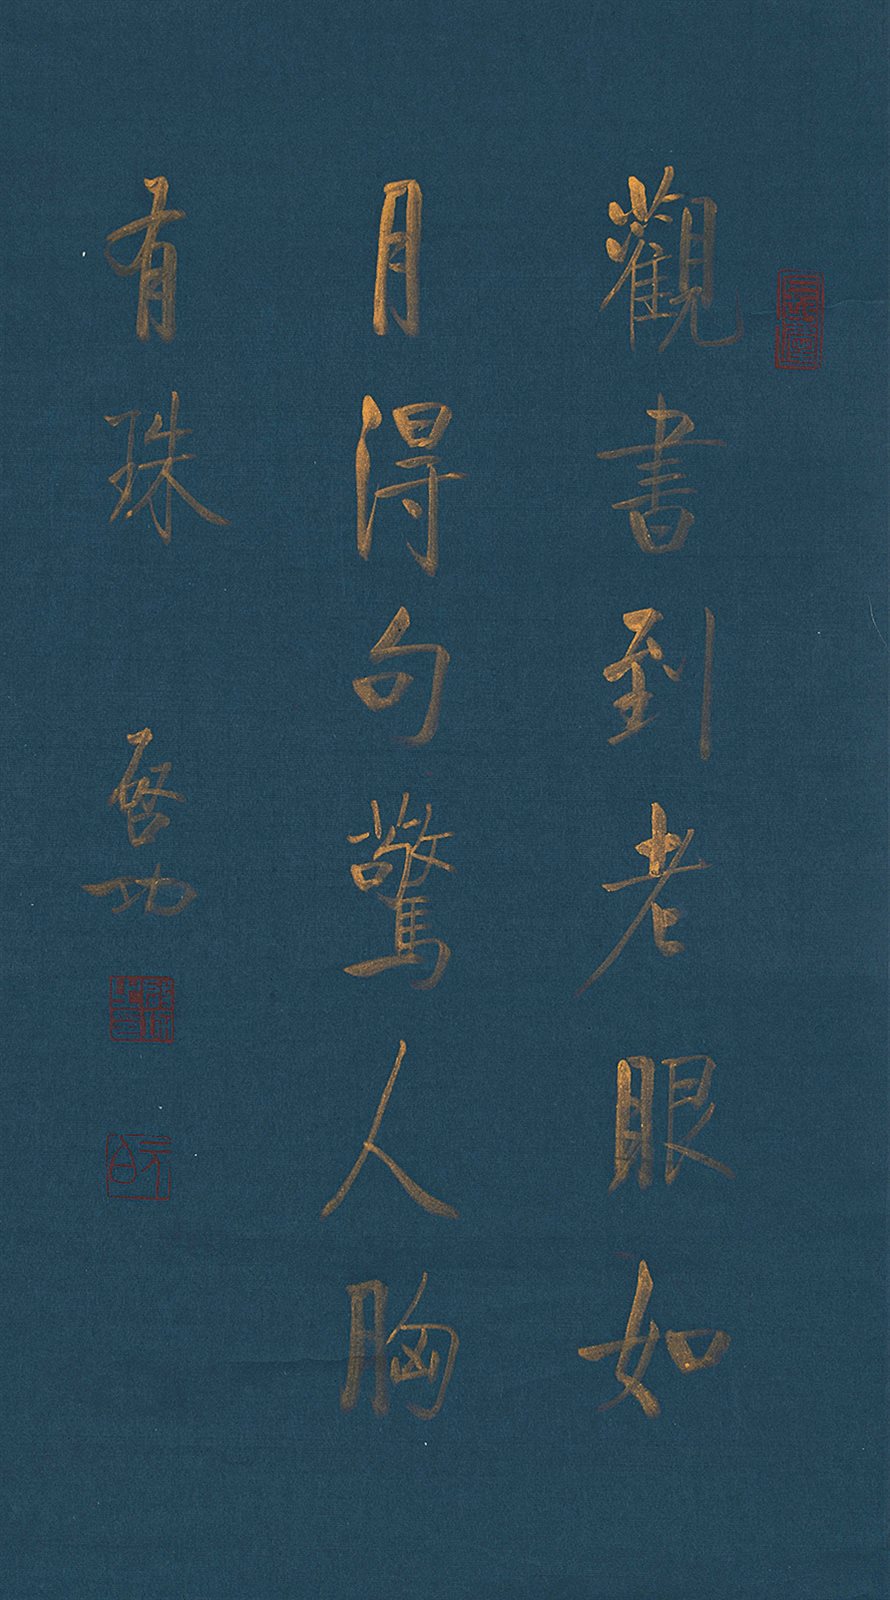 觀書到老眼如
月得句驚人胸
有珠
啓功